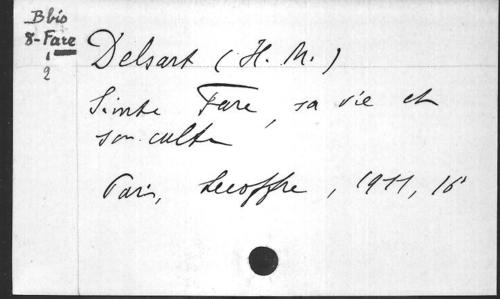 B bis
8-Fare
1
2
Delsart (H. M.)
Sainte Fare, sa vie et
son culte
Paris, Lecoffre, 1911, 16°